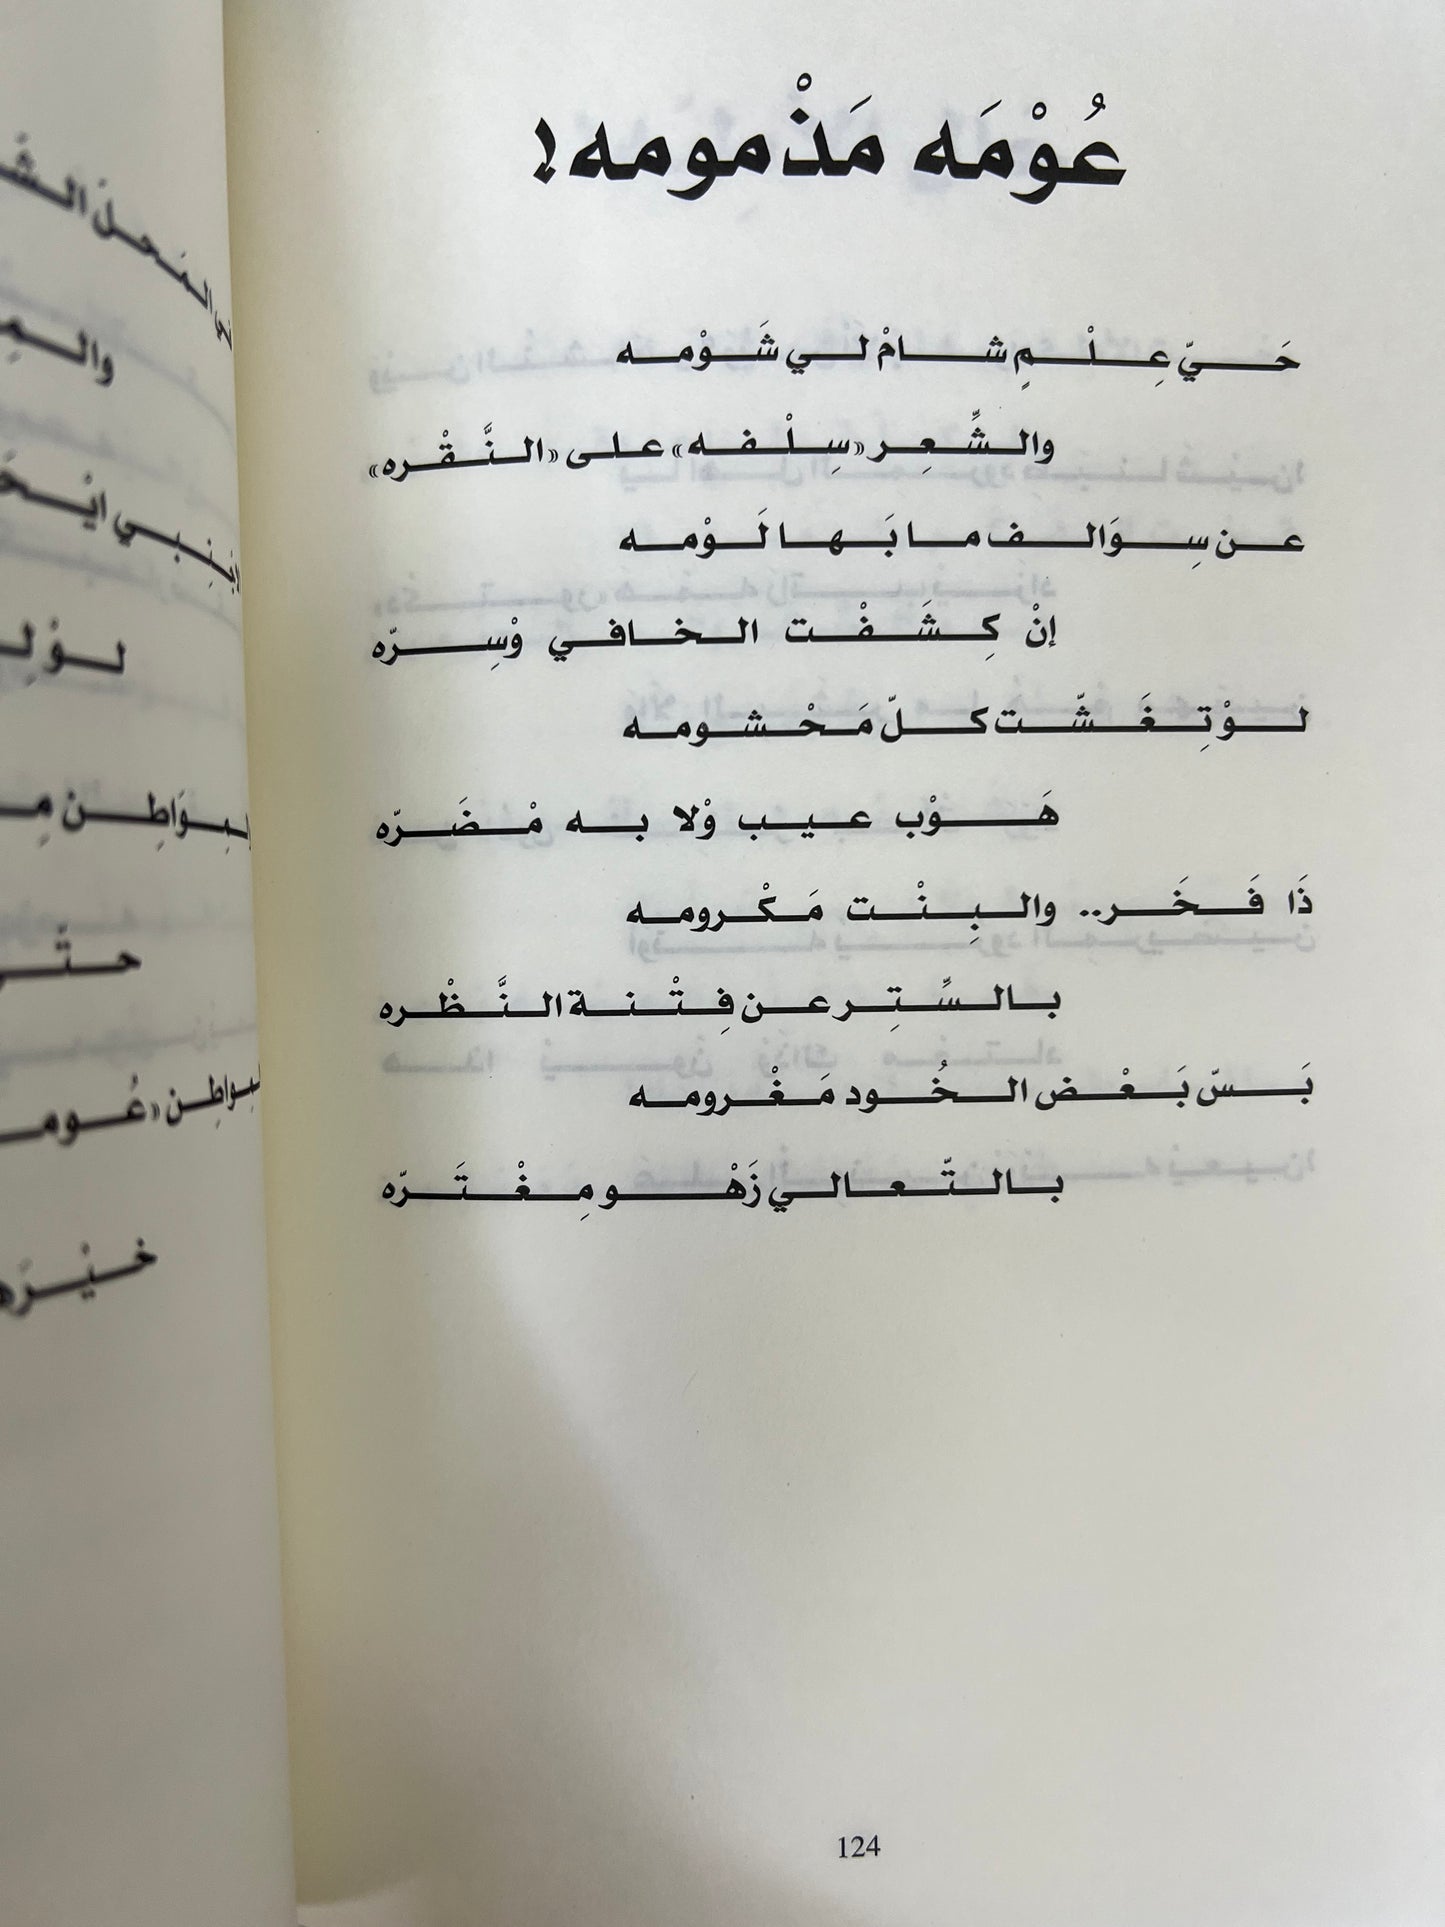 عُوْمَه مَذْمومه!
حَيّ عِلْمٍ شامْ لي شَوْمه
والشِّعِر «سِلْفه» على «النَّقْره»
عن سِوَالف ما بَها لَوْمه
إنْ كِشَفْت الخافي وْسِرّه
لوْ تِغَشّت كلّ مَحْشومه
هَوْب عيب وْلا به مْضَرّه
ذَا فَخَر.. والبِنْت مَكْرومه
بالسِّتِر عن فِتْنة النَّظْره
بَسّ بَعْض الخُود مَغْرومه
بالتّعالي زَهْو مِغْتَرّه
124
والـ
لوْلـ
حتّـ
خيْرَ